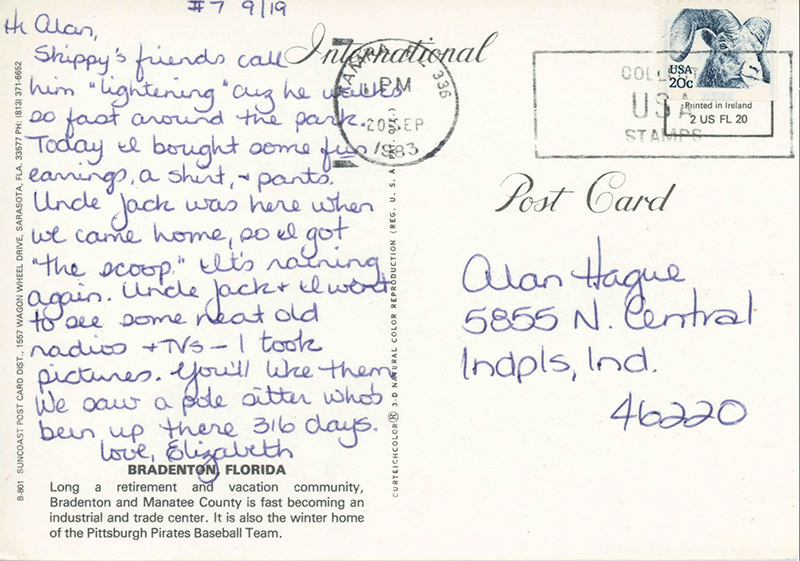 #7 9/19
Hi Alan,
Skippy's friends call
him "lightening" cuz he walks
so fast around the park.
Today I bought some fun
earrings, a shirt, + pants.
Uncle Jack was here when
we came home, so I got
"the scoop." It's raining
again. Uncle Jack + I went
to see some neat old
radios + TVs - I took
pictures. You'll like them
We saw a pole sitter who's
been up there 316 days.
Love, Elizabeth
BRADENTON, FLORIDA
Long a retirement and vacation community,
Bradenton and Manatee County is fast becoming an
industrial and trade center. It is also the winter home
of the Pittsburgh Pirates Baseball Team.
B-801 SUNCOAST POST CARD DIST., 1557 WAGON WHEEL DRIVE, SARASOTA, FLA. 33577 PH: (813) 371-6652
CURTEICHCOLOR® 3-D NATURAL COLOR REPRODUCTION (REG. U. S. A.
International
Post Card
336
PM
20 SEP
1983
COLLECT
USA
STAMPS
USA
20c
Printed in Ireland
2 US FL 20
Alan Hague
5855 N. Central
Indpls, Ind.
46220